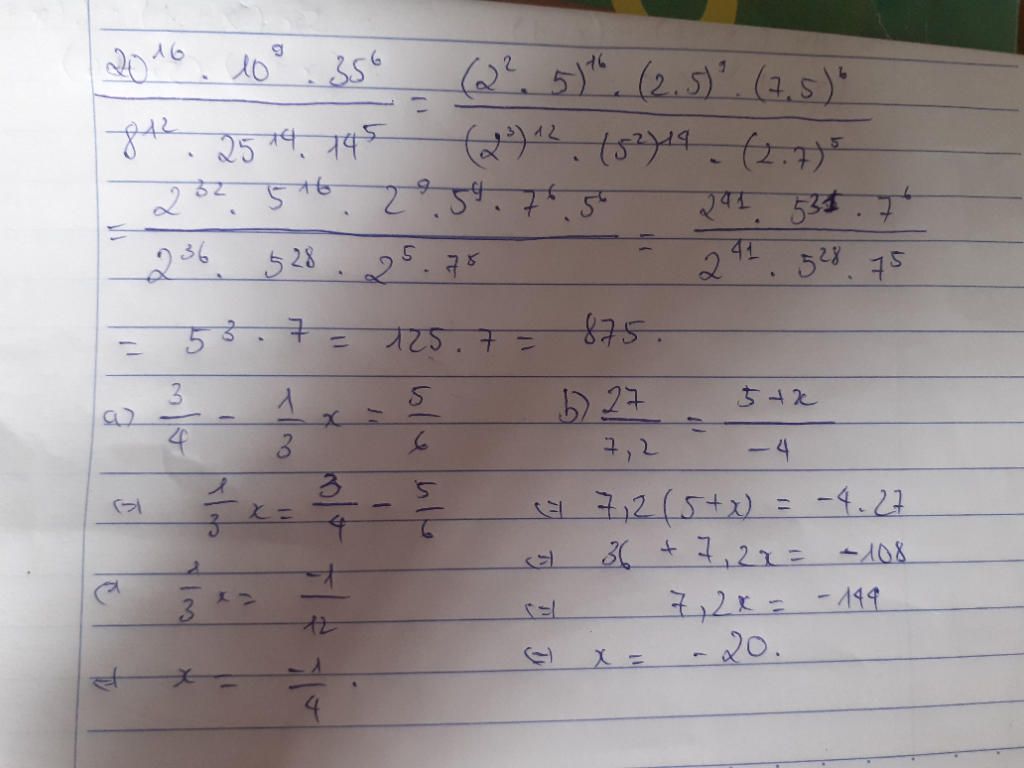 20^16 . 10^9 . 35^6 / 8^12 . 25^14 . 14^5 = (2^2 . 5)^16 . (2.5)^9 . (7.5)^6 / (2^3)^12 . (5^2)^14 . (2.7)^5
= 2^32 . 5^16 . 2^9 . 5^9 . 7^6 . 5^6 / 2^36 . 5^28 . 2^5 . 7^5 = 2^41 . 5^31 . 7^6 / 2^41 . 5^28 . 7^5
= 5^3 . 7 = 125 . 7 = 875.
a) 3/4 - 1/3 x = 5/6
⇔ 1/3 x = 3/4 - 5/6
⇔ 1/3 x = -1/12
⇔ x = -1/4 .
b) 27/7,2 = 5+x/-4
⇔ 7,2(5+x) = -4.27
⇔ 36 + 7,2x = -108
⇔ 7,2x = -144
⇔ x = -20.